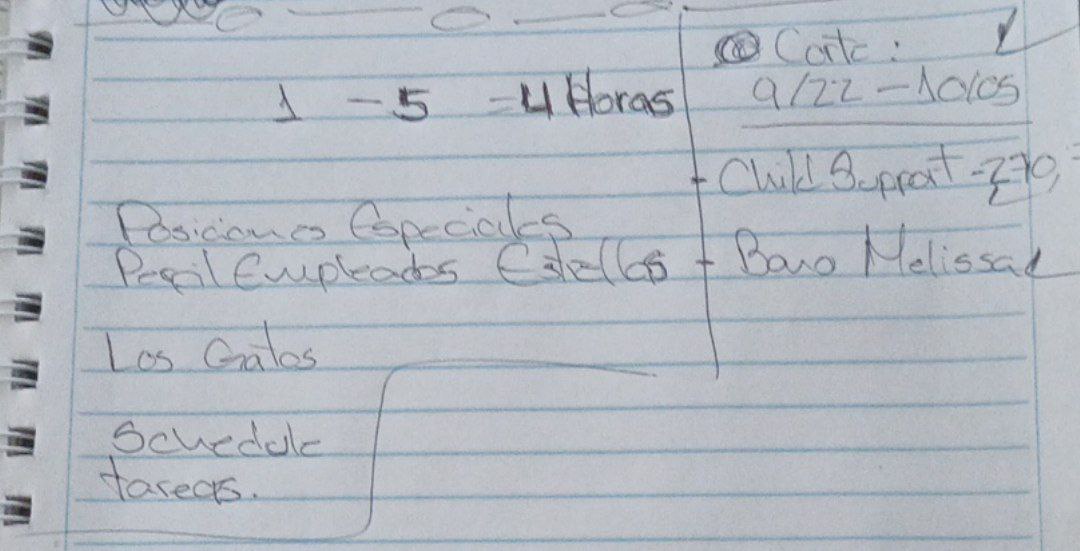 1 - 5 = 4 Horas
Posiciones Especiales
Perfil Empleados Estrellas
Los Gatos
Schedule
tareas.
Corte:
9/22 - 10/05
- Child Support - 270,
- Bono Melissa